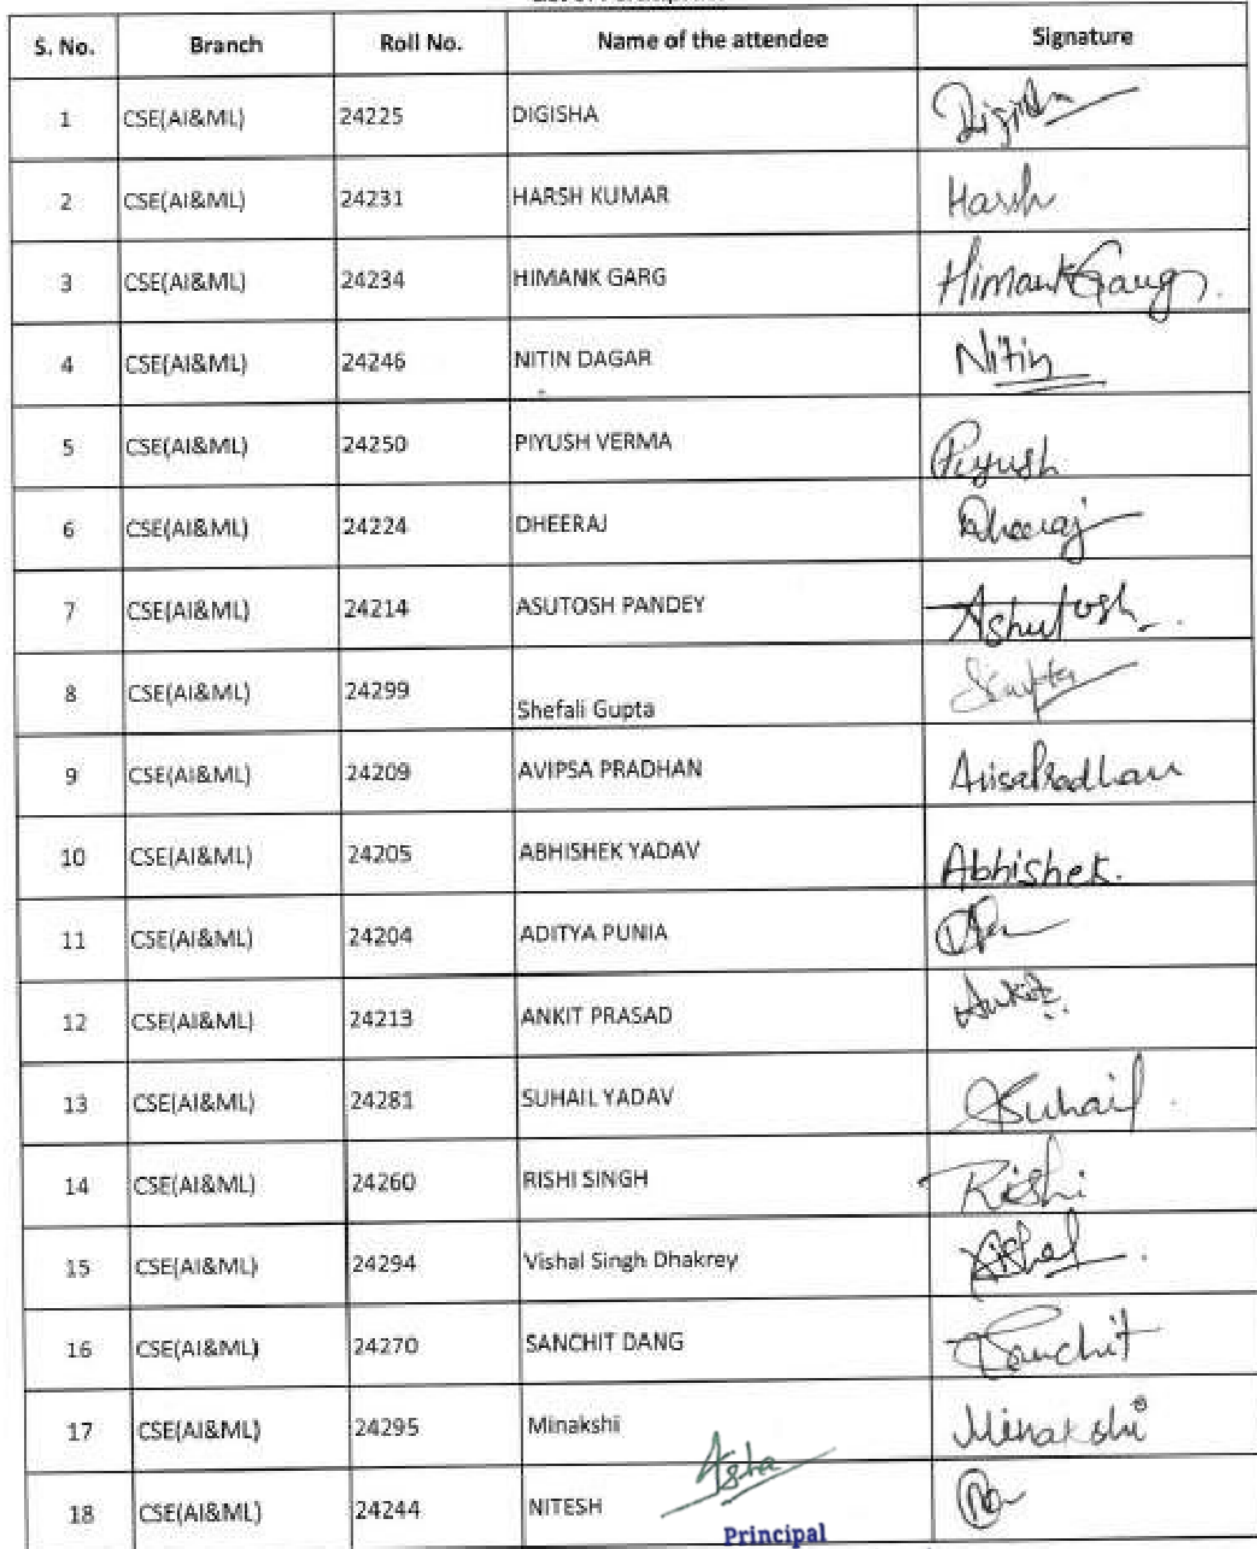 S. No. Branch Roll No. Name of the attendee Signature
1 CSE(AI&ML) 24225 DIGISHA Digisha
2 CSE(AI&ML) 24231 HARSH KUMAR Harsh
3 CSE(AI&ML) 24234 HIMANK GARG Himank Garg.
4 CSE(AI&ML) 24246 NITIN DAGAR Nitin
5 CSE(AI&ML) 24250 PIYUSH VERMA Piyush
6 CSE(AI&ML) 24224 DHEERAJ Dheeraj
7 CSE(AI&ML) 24214 ASUTOSH PANDEY Ashutosh
8 CSE(AI&ML) 24299 Shefali Gupta
9 CSE(AI&ML) 24209 AVIPSA PRADHAN Avisa Pradhan
10 CSE(AI&ML) 24205 ABHISHEK YADAV Abhishek.
11 CSE(AI&ML) 24204 ADITYA PUNIA
12 CSE(AI&ML) 24213 ANKIT PRASAD Ankit
13 CSE(AI&ML) 24281 SUHAIL YADAV Suhail
14 CSE(AI&ML) 24260 RISHI SINGH Rishi
15 CSE(AI&ML) 24294 Vishal Singh Dhakrey Vishal
16 CSE(AI&ML) 24270 SANCHIT DANG Sanchit
17 CSE(AI&ML) 24295 Minakshi Minakshi
Asha
18 CSE(AI&ML) 24244 NITESH
Principal